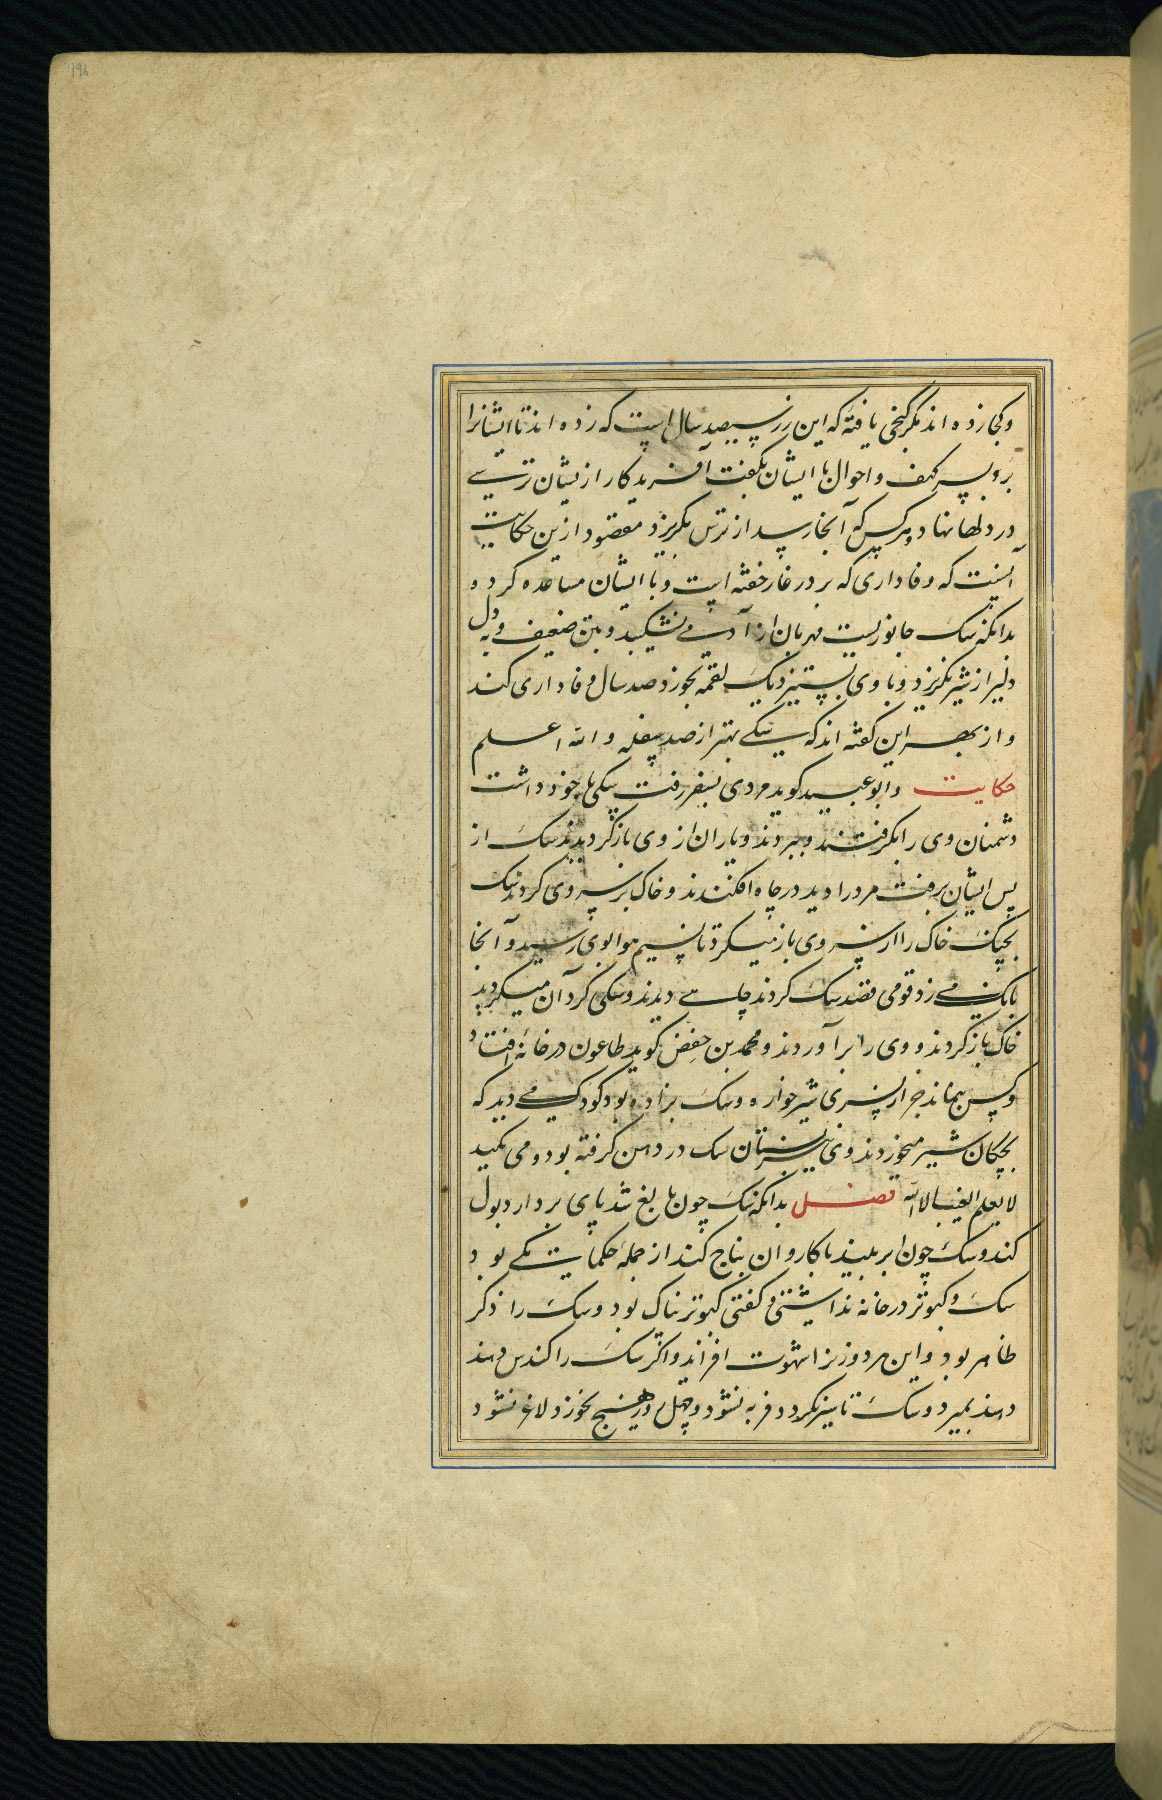 ۱۹۸
و کجا زده اند مگر گنجی یافتهٔ که این زر سیصد سال است که زده اند تا ایشانرا
برد بسر کهف و احوال با ایشان بگفت آفریدگار از یشان ترسی
در دلها نهاد و هرکس که آنجا رسد از ترس بگریزد مقصود ازین حکایت
آنست که وفاداری که بر در غار خفته است و با ایشان مساعده کرد و
بدانکه سک جانوریست مهربان از آدمی نشکیبد و بتن ضعیف و به دل
دلیر از شیر نگریزد و با وی بستیزد یک لقمه بخورد صد سال وفاداری کند
و از بهر این گفته اند که سکی بهتر از صد سفله والله اعلم
حکایت وابو عبید کوید مردی بسفر رفت سکی با خود داشت
دشمنان وی را بگرفتند و ببردند و یاران از وی باز گردیدند سک از
پس ایشان برفت مرد را دید در چاه افکندند و خاک بر سر وی کردند سک
بچنگ خاک را از سر وی باز میکرد تا نسیم هوا بوی رسید و آنجا
بانک می زد قومی قصد سک کردند چاهی دیدند و سکی گرد آن میگردید
خاک باز کردند و وی را برآوردند و محمد بن حفص کوید طاعون در خانهٔ افتاد
و کس نماند جز از پسری شیرخواره و سک بزاده بود کودک می دید که
بچکان شیر میخوردند وی نیز پستان سک در دهن گرفته بود و می مکید
لا یعلم الغیب الا الله فصل بدانکه سک چون بالغ شد پای بردارد بول
کند و سک چون ابر بیند با کاروان نباح کند از جملهٔ حکمایت یکی بود
سک و کبوتر در خانه نداشتی و گفتی کبوتر ناک بود و سک را ذکر
ظاهر بود و این هر دو زنرا شهوت افزاید و اگر سک را کندس دهند
دهند بمیرد و سک تا سیر نگردد فربه نشود و چهل روز هیچ نخورد لاغر نشود